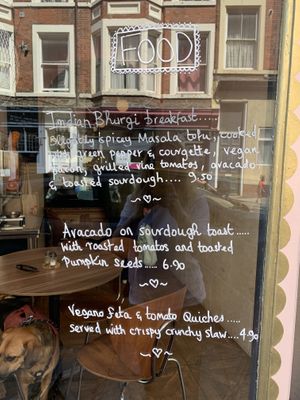 FOOD
Indian Bhurgi breakfast.....
Slightly spicey Masala tofu, cooked
green pepper & courgette, vegan
bacon, grilled vine tomatos, avacado
& toasted sourdough.... 9.50
Avacado on sourdough toast.....
With roasted tomatos and toasted
Pumpkin seeds..... 6.90
Vegano feta & tomato Quiches.....
served with crispy crunchy slaw....4.90